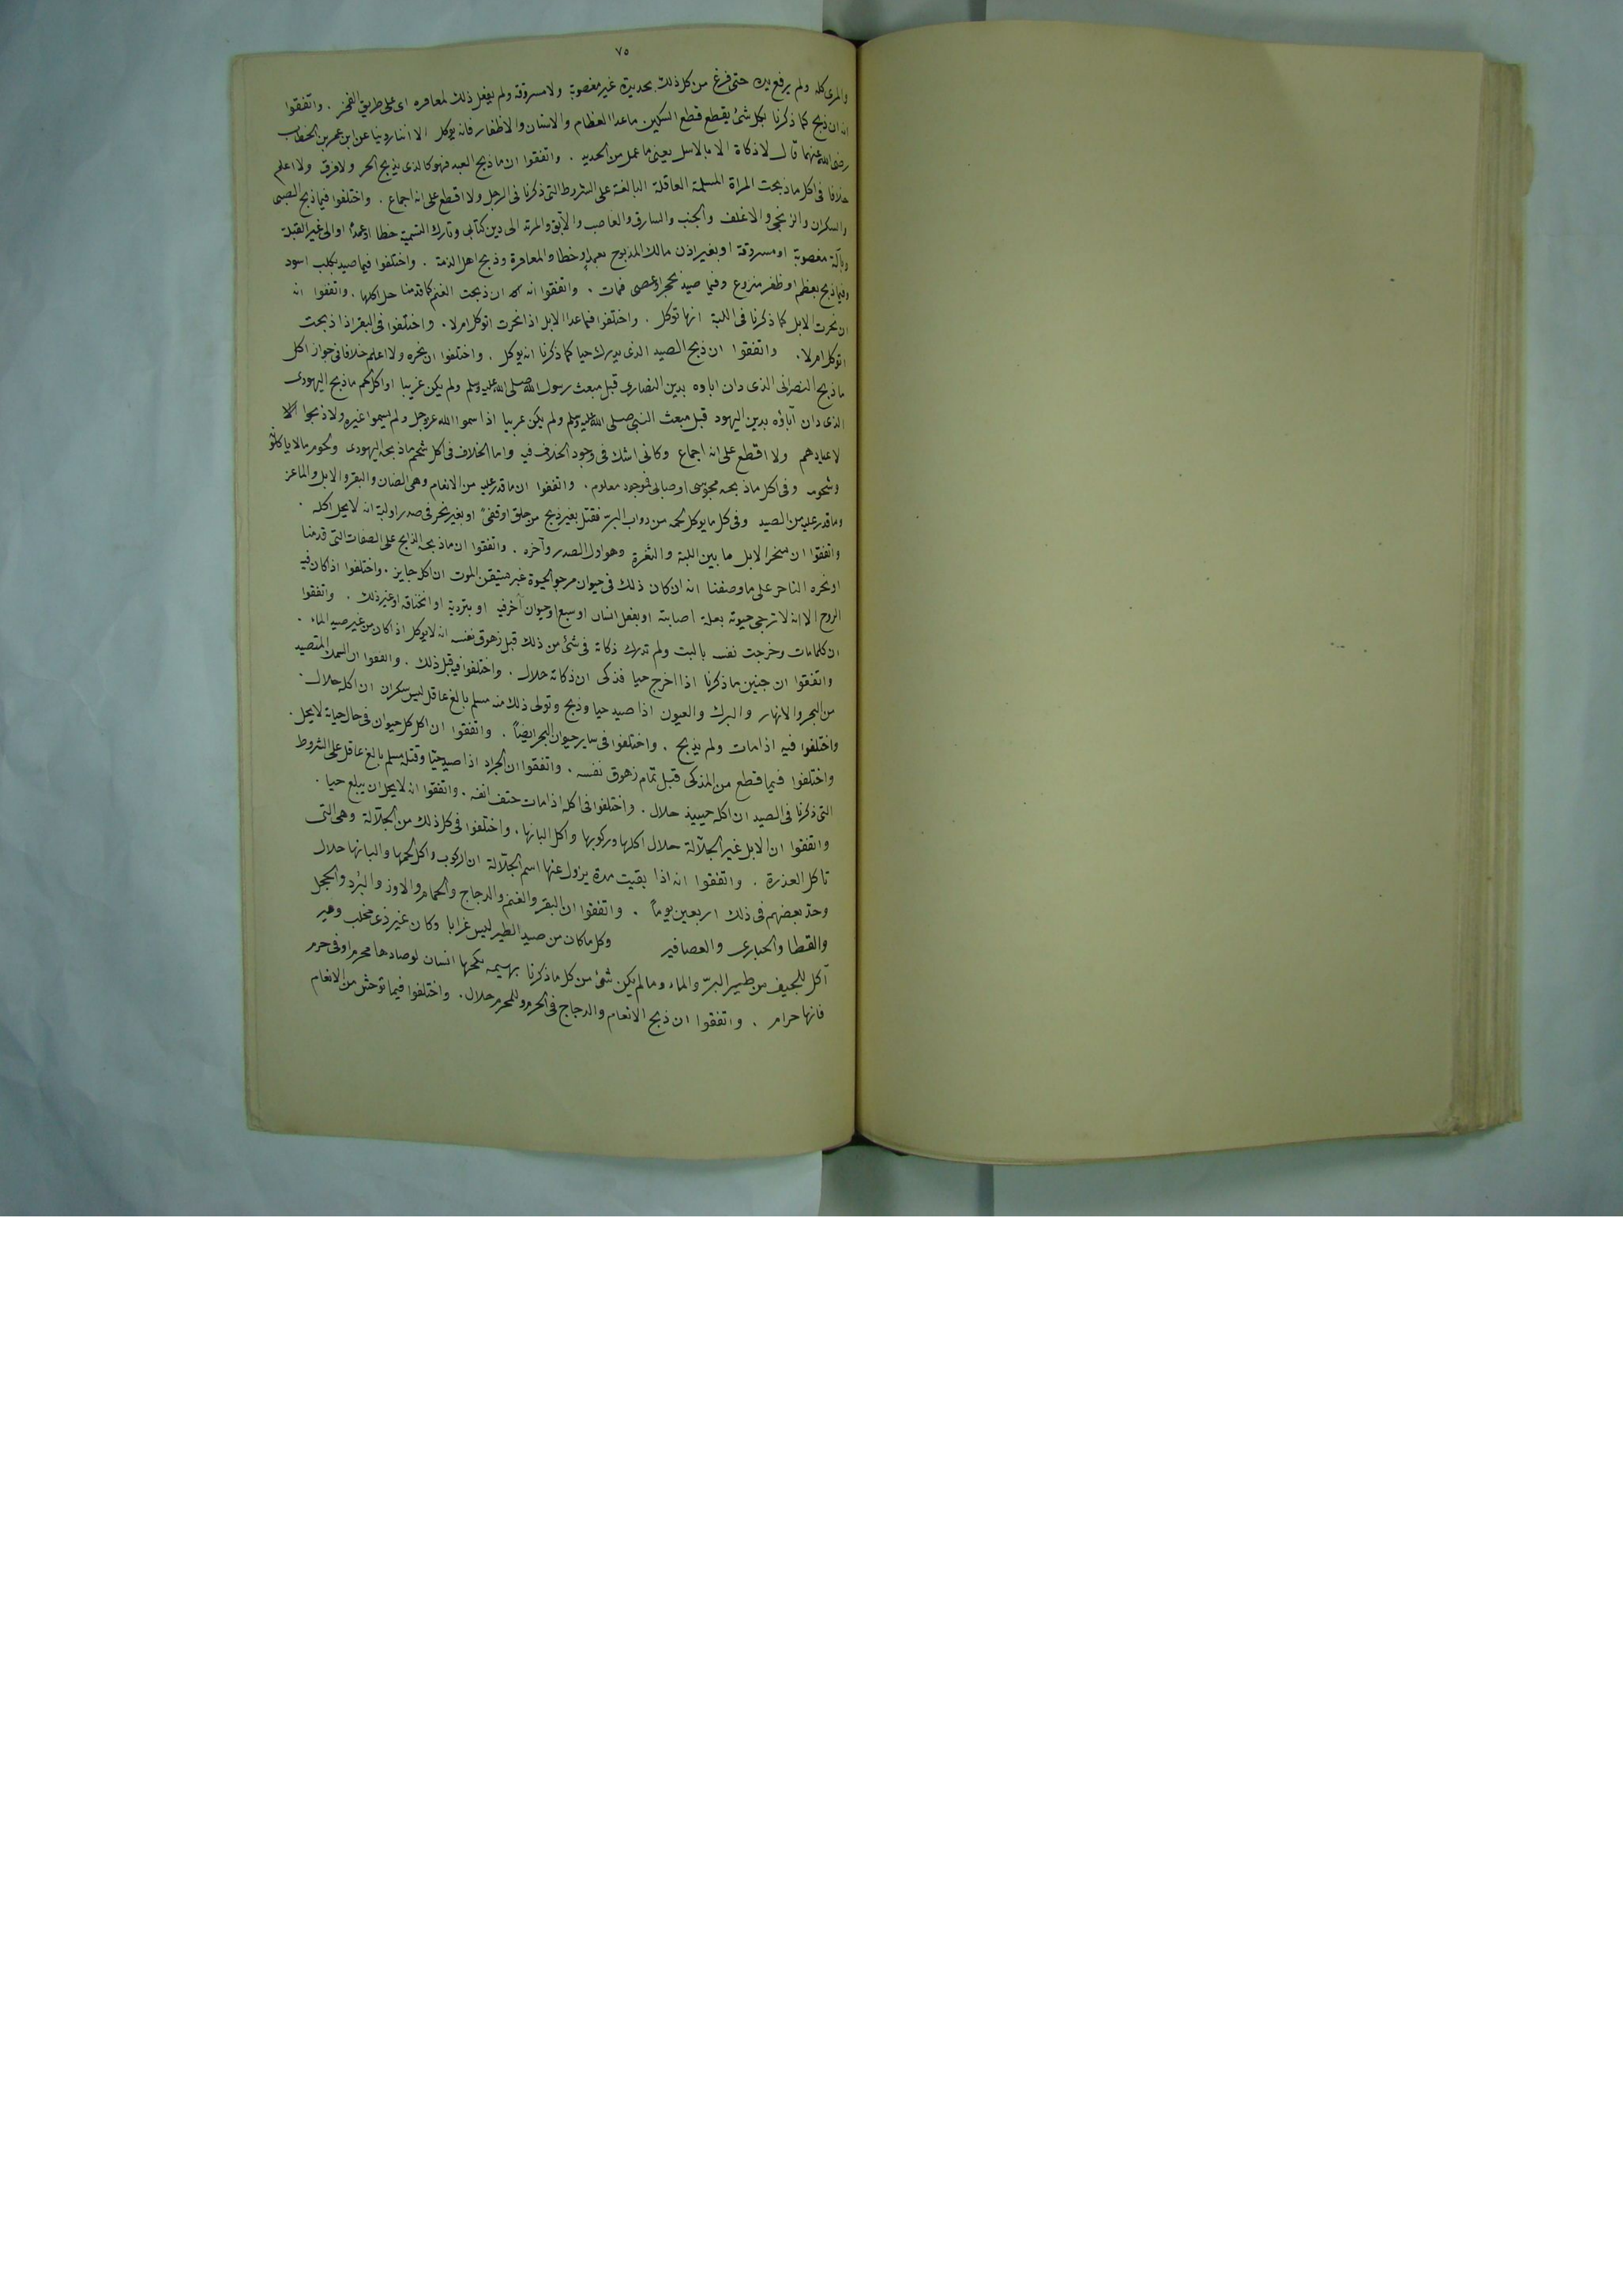 ٧٥
والمرى كله ولم يرفع يده حتى فرغ من كل ذلك بحديدة غير مغصوبة ولا مسروقة ولم يفعل ذلك لمعاقره اى على طريق الفخر . واتفقوا
انه ان ذبح كما ذكرنا بكل شئ يقطع قطع السكين ماعدا العظام والاسنان والاظفار فانه يوكل الا اننا روينا عن ابن عمر بن الخطاب
رضى الله عنهما قال لا ذكاة الا بالاسل يعنى ما عمل من الحديد . واتفقوا ان ما ذبح العبد فهو كالذى يذبح الحر ولا فرق ولا اعلم
خلافا فى اكل ما ذبحت المراة المسلمة العاقلة البالغة على الشروط التى ذكرنا فى الرجل ولا اقطع على انه اجماع . واختلفوا فيما ذبح الصبى
والسكران والزنجى والاغلف والجنب والسارق والغاصب والآبق والمرتد الى دين كتابى وتارك التسمية خطا او عمدًا او الى غير القبلة
وبآلة مغصوبة او مسروقة او بغير اذن مالك المذبوح بعمد او خطا والمعاقرة وذبح اهل الذمة . واختلفوا فيما صيد بكلب اسود
وفيما ذبح بعظم او ظفر منزوع وفيما صيد بحجر او عصى فمات . واتفقوا انه ان ذبحت الغنم كما قدمنا حل اكلها . واتفقوا انه
ان نحرت الابل كما ذكرنا فى اللبة انها توكل . واختلفوا فيما عدا الابل اذا نحرت اتوكل ام لا . واختلفوا فى البقر اذا ذبحت
اتوكل ام لا . واتفقوا ان ذبح الصيد الذى يدرك حيا كما ذكرنا انه يوكل . واختلفوا ان نحره ولا اعلم خلافا فى جواز اكل
ما ذبح النصرانى الذى دان اباوه بدين النصارى قبل مبعث رسول الله صلى الله عليه وسلم ولم يكن عربيا او اكل لحم ما ذبح اليهودى
الذى دان آباؤه بدين اليهود قبل مبعث النبى صلى الله عليه وسلم ولم يكن عربيا اذا سموا الله عز وجل ولم يسموا غيره ولا ذبحوا
لاعيادهم ولا اقطع على انه اجماع وكانى اشك فى وجود الخلاف فيه واما الخلاف فى اكل شحم ما ذبحه اليهودى ولحوم مالا ياكلونه
وشحومه وفى اكل ما ذبحه مجوسى او صابى فموجود معلوم . واتفقوا ان ما قدر عليه من الانعام وهى الضان والبقر والابل والماعز
وما قدر عليه من الصيد وفى كل ما يوكل لحمه من دواب البر فقتل بغير ذبح من حلق او قفىً او بغير نحر فى صدر او لبة انه لا يحل اكله .
واتفقوا ان منحر الابل ما بين اللبة والثغرة وهو اول الصدر وآخره . واتفقوا ان ما ذبحه الذابح على الصفات التى قدمنا
او نحره الناحر على ما وصفنا انه ان كان ذلك فى حيوان مرجو الحيوة غير مستيقن الموت ان اكله جايز . واختلفوا اذا كان فيه
الروح الا انه لا ترجى حيوته بعلة اصابته او بفعل انسان او سبع او حيوان آخر فيه او بتردية او انخناقه او غير ذلك . واتفقوا
ان كلما مات وخرجت نفسه بالبت ولم تدرك ذكاة فى شئ من ذلك قبل زهوق نفسه انه لا يوكل اذا كان من غير صيد الماء .
واتفقوا ان جنين ما ذكرنا اذا اخرج حيا فذكى ان ذكاته حلال . واختلفوا فيه قبل ذلك . واتفقوا ان السمك المتصيد
من البحر والانهار والبرك والعيون اذا صيد حيا وذبح وتولى ذلك منه مسلم بالغ عاقل ليس سكران ان اكله حلال .
واختلفوا فيه اذا مات ولم يذبح . واختلفوا فى ساير حيوان البحر ايضاً . واتفقوا ان اكل كل حيوان فى حال حياته لا يحل .
واختلفوا فيما قطع من المذكى قبل تمام زهوق نفسه . واتفقوا ان الجراد اذا صيد حيّا وقتله مسلم بالغ عاقل على الشروط
التى ذكرنا فى الصيد ان اكله حينيذ حلال . واختلفوا فى اكله اذا مات حتف انفه . واتفقوا انه لا يحل ان يبلع حيا .
واتفقوا ان الابل غير الجلّالة حلال اكلها وركوبها واكل البانها . واختلفوا فى كل ذلك من الجلّالة وهى التى
تاكل العذرة . واتفقوا انه اذا بقيت مدة يزول عنها اسم الجلّالة ان الركوب واكل لحمها والبانها حلال
وحدّ بعضهم فى ذلك اربعين يوماً . واتفقوا ان البقر والغنم والدجاج والحمام والاوز والبُرد والحجل
والقطا والحبارى والعصافير وكل ما كان من صيد الطير ليس غرابا وكان غير ذى مخلب وغير
آكل للجيف من طير البرّ والماء وما لم يكن شئ من كل ما ذكرنا بهيمه نكحها انسان او صادها محرم او فى حرم
فانها حرام . واتفقوا ان ذبح الانعام والدجاج فى الحرم وللمحرم حلال . واختلفوا فيما توحش من الانعام